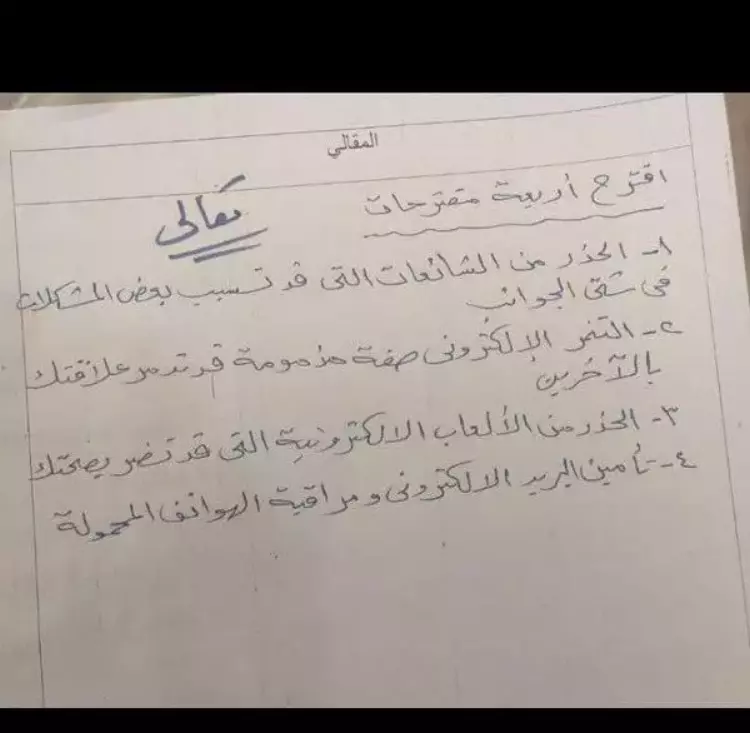 المقالي
اقترح أربعة مقترحات
مقالى
١- الحذر من الشائعات التى قد تسبب بعض المشكلات
فى شتى الجوانب
٢- التنمر الإلكترونى صفة مذمومة قد تدمر علاقتك
بالآخرين
٣- الحذر من الألعاب الالكترونية التى قد تضر بصحتك
٤- تأمين البريد الالكترونى ومراقبة الهواتف المحمولة